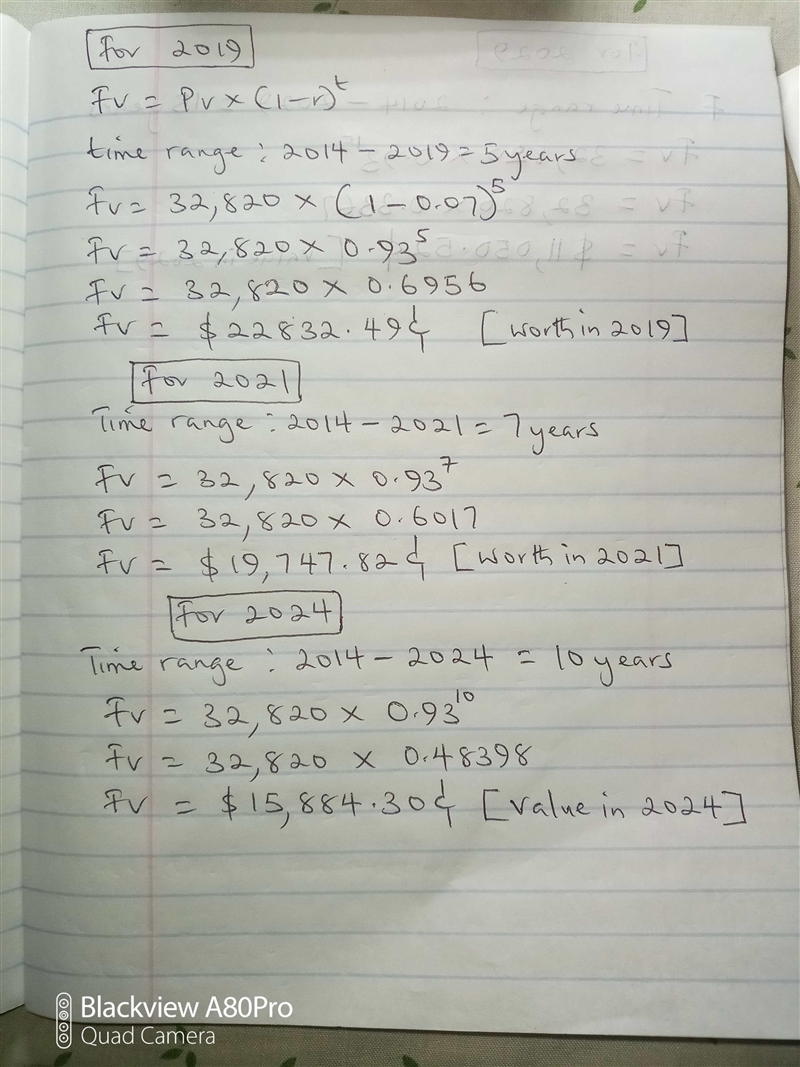 For 2019
Fv = Pv × (1-r)^t
time range : 2014 - 2019 = 5 years
Fv = 32,820 × (1 - 0.07)^5
Fv = 32,820 × 0.93^5
Fv = 32,820 × 0.6956
Fv = $22832.49¢ [worth in 2019]
For 2021
Time range : 2014 - 2021 = 7 years
Fv = 32,820 × 0.93^7
Fv = 32,820 × 0.6017
Fv = $19,747.82¢ [worth in 2021]
For 2024
Time range : 2014 - 2024 = 10 years
Fv = 32,820 × 0.93^10
Fv = 32,820 × 0.48398
Fv = $15,884.30¢ [value in 2024]
Blackview A80Pro
Quad Camera